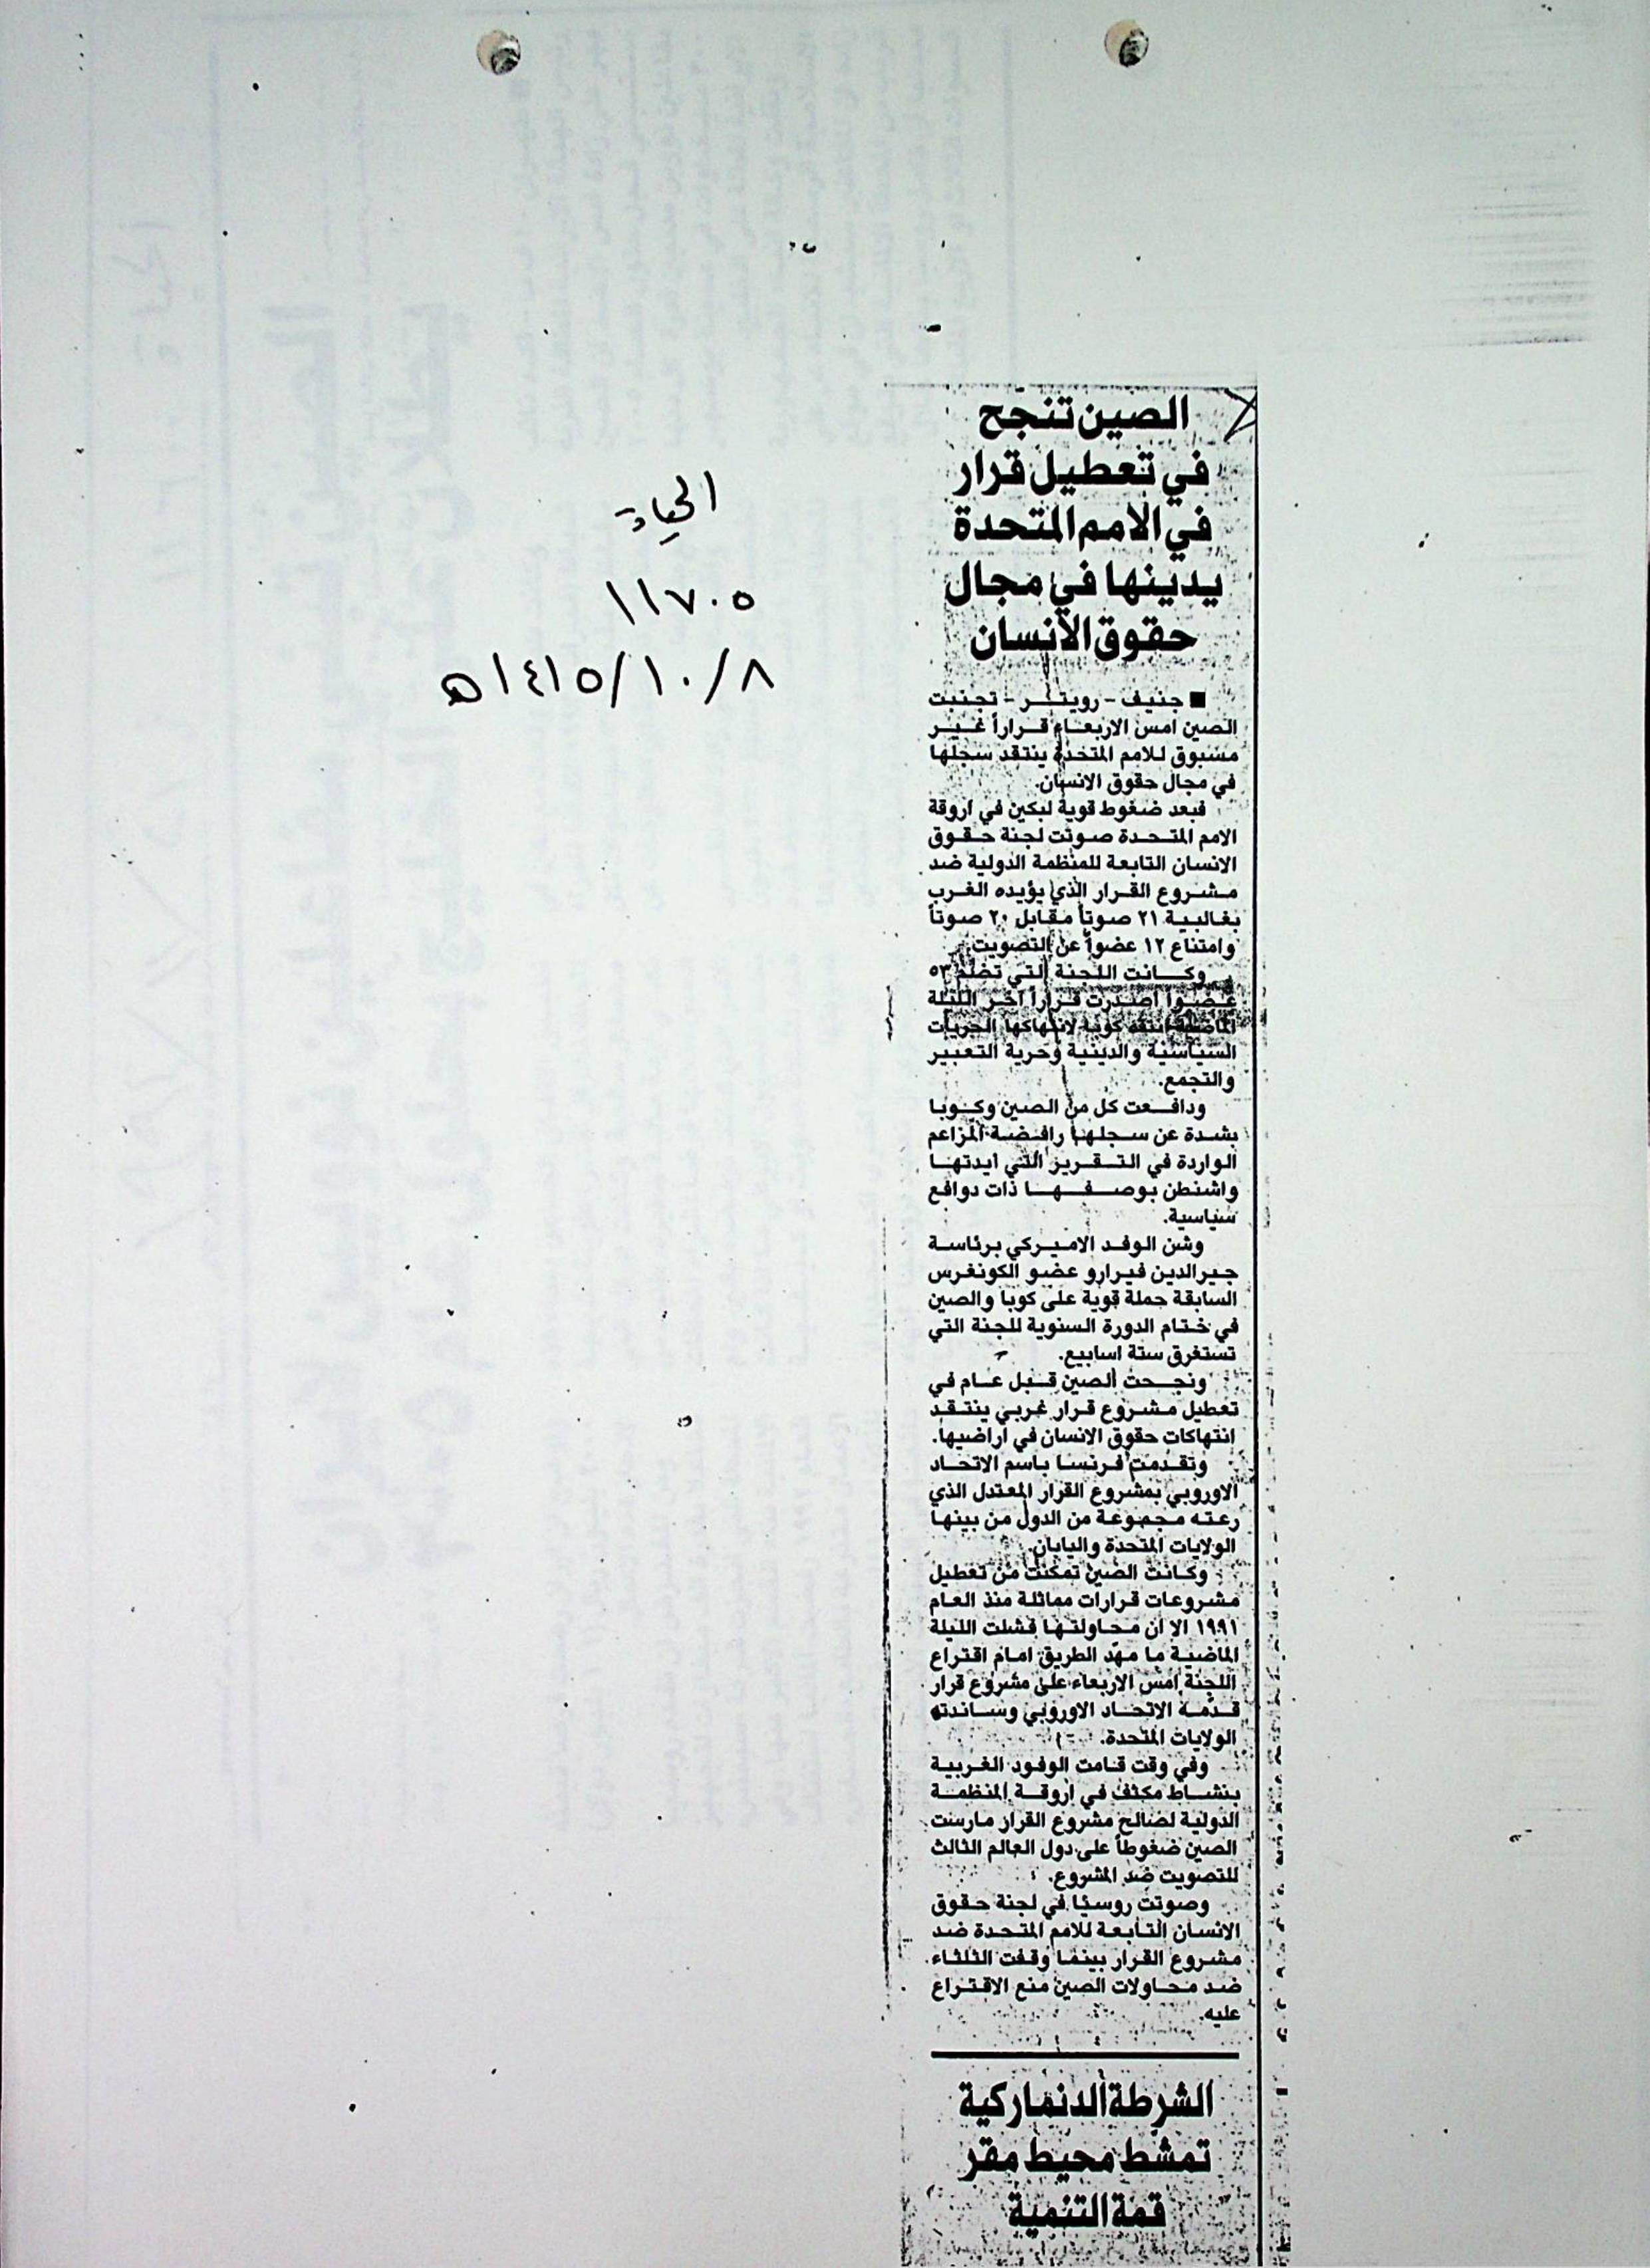 الصين تنجح
في تعطيل قرار
في الامم المتحدة
يدينها في مجال
حقوق الانسان
■ جنيف - رويتر - تجنبت
الصين امس الاربعاء قراراً غير
مسبوق للامم المتحدة ينتقد سجلها
في مجال حقوق الانسان.
فبعد ضغوط قوية لبكين في اروقة
الامم المتحدة صوتت لجنة حقوق
الانسان التابعة للمنظمة الدولية ضد
مشروع القرار الذي يؤيده الغرب
بغالبية ٢١ صوتاً مقابل ٢٠ صوتاً
وامتناع ١٢ عضواً عن التصويت.
وكانت اللجنة التي تضم ٥٣
عضوا اصدرت قراراً آخر الليلة
الماضية انتقد كوبا لانتهاكها الحريات
السياسية والدينية وحرية التعبير
والتجمع.
ودافعت كل من الصين وكوبا
بشدة عن سجلها رافضة المزاعم
الواردة في التقرير التي ايدتها
واشنطن بوصفها ذات دوافع
سياسية.
وشن الوفد الاميركي برئاسة
جيرالدين فيرارو عضو الكونغرس
السابقة حملة قوية على كوبا والصين
في ختام الدورة السنوية للجنة التي
تستغرق ستة اسابيع.
ونجحت الصين قبل عام في
تعطيل مشروع قرار غربي ينتقد
انتهاكات حقوق الانسان في اراضيها.
وتقدمت فرنسا باسم الاتحاد
الاوروبي بمشروع القرار المعتدل الذي
رعته مجموعة من الدول من بينها
الولايات المتحدة واليابان.
وكانت الصين تمكنت من تعطيل
مشروعات قرارات مماثلة منذ العام
١٩٩١ الا ان محاولتها فشلت الليلة
الماضية ما مهّد الطريق امام اقتراع
اللجنة امس الاربعاء على مشروع قرار
قدّمه الاتحاد الاوروبي وساندته
الولايات المتحدة.
وفي وقت قامت الوفود الغربية
بنشاط مكثف في اروقة المنظمة
الدولية لصالح مشروع القرار مارست
الصين ضغوطاً على دول العالم الثالث
للتصويت ضد المشروع.
وصوتت روسيا في لجنة حقوق
الانسان التابعة للامم المتحدة ضد
مشروع القرار بينما وقفت الثلثاء
ضد محاولات الصين منع الاقتراع
عليه.
الشرطة الدنماركية
تمشط محيط مقر
قمة التنمية
الحياة
١١٧٠٥
٨/١٠/١٤١٥هـ